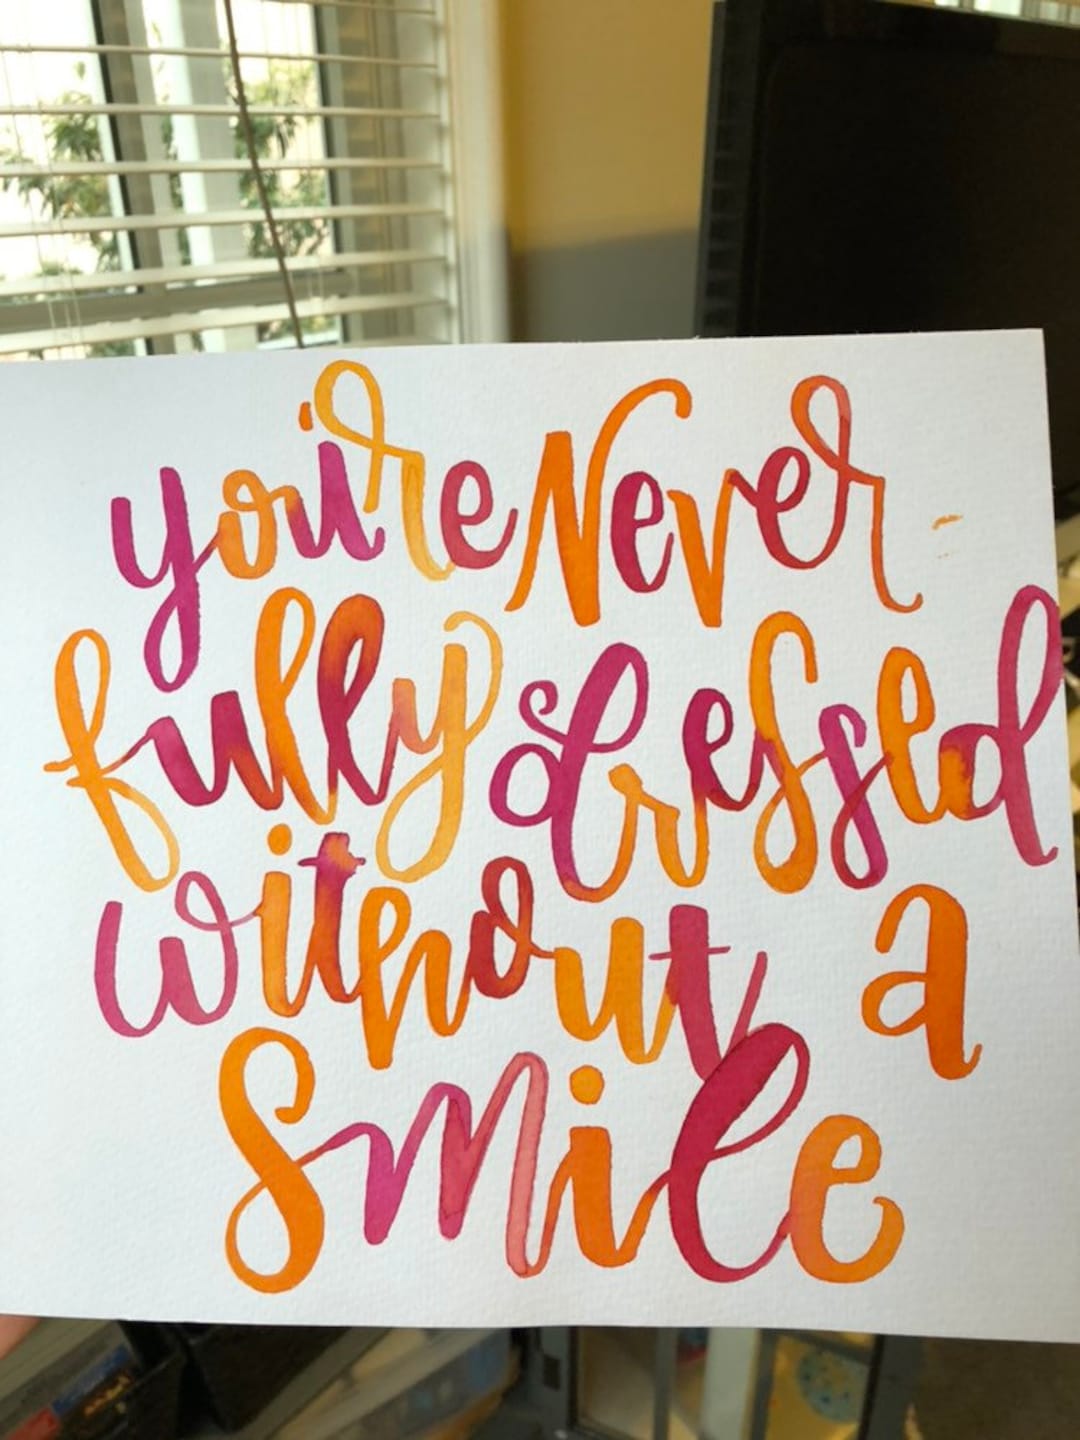 you're Never
fully dressed
without a
Smile